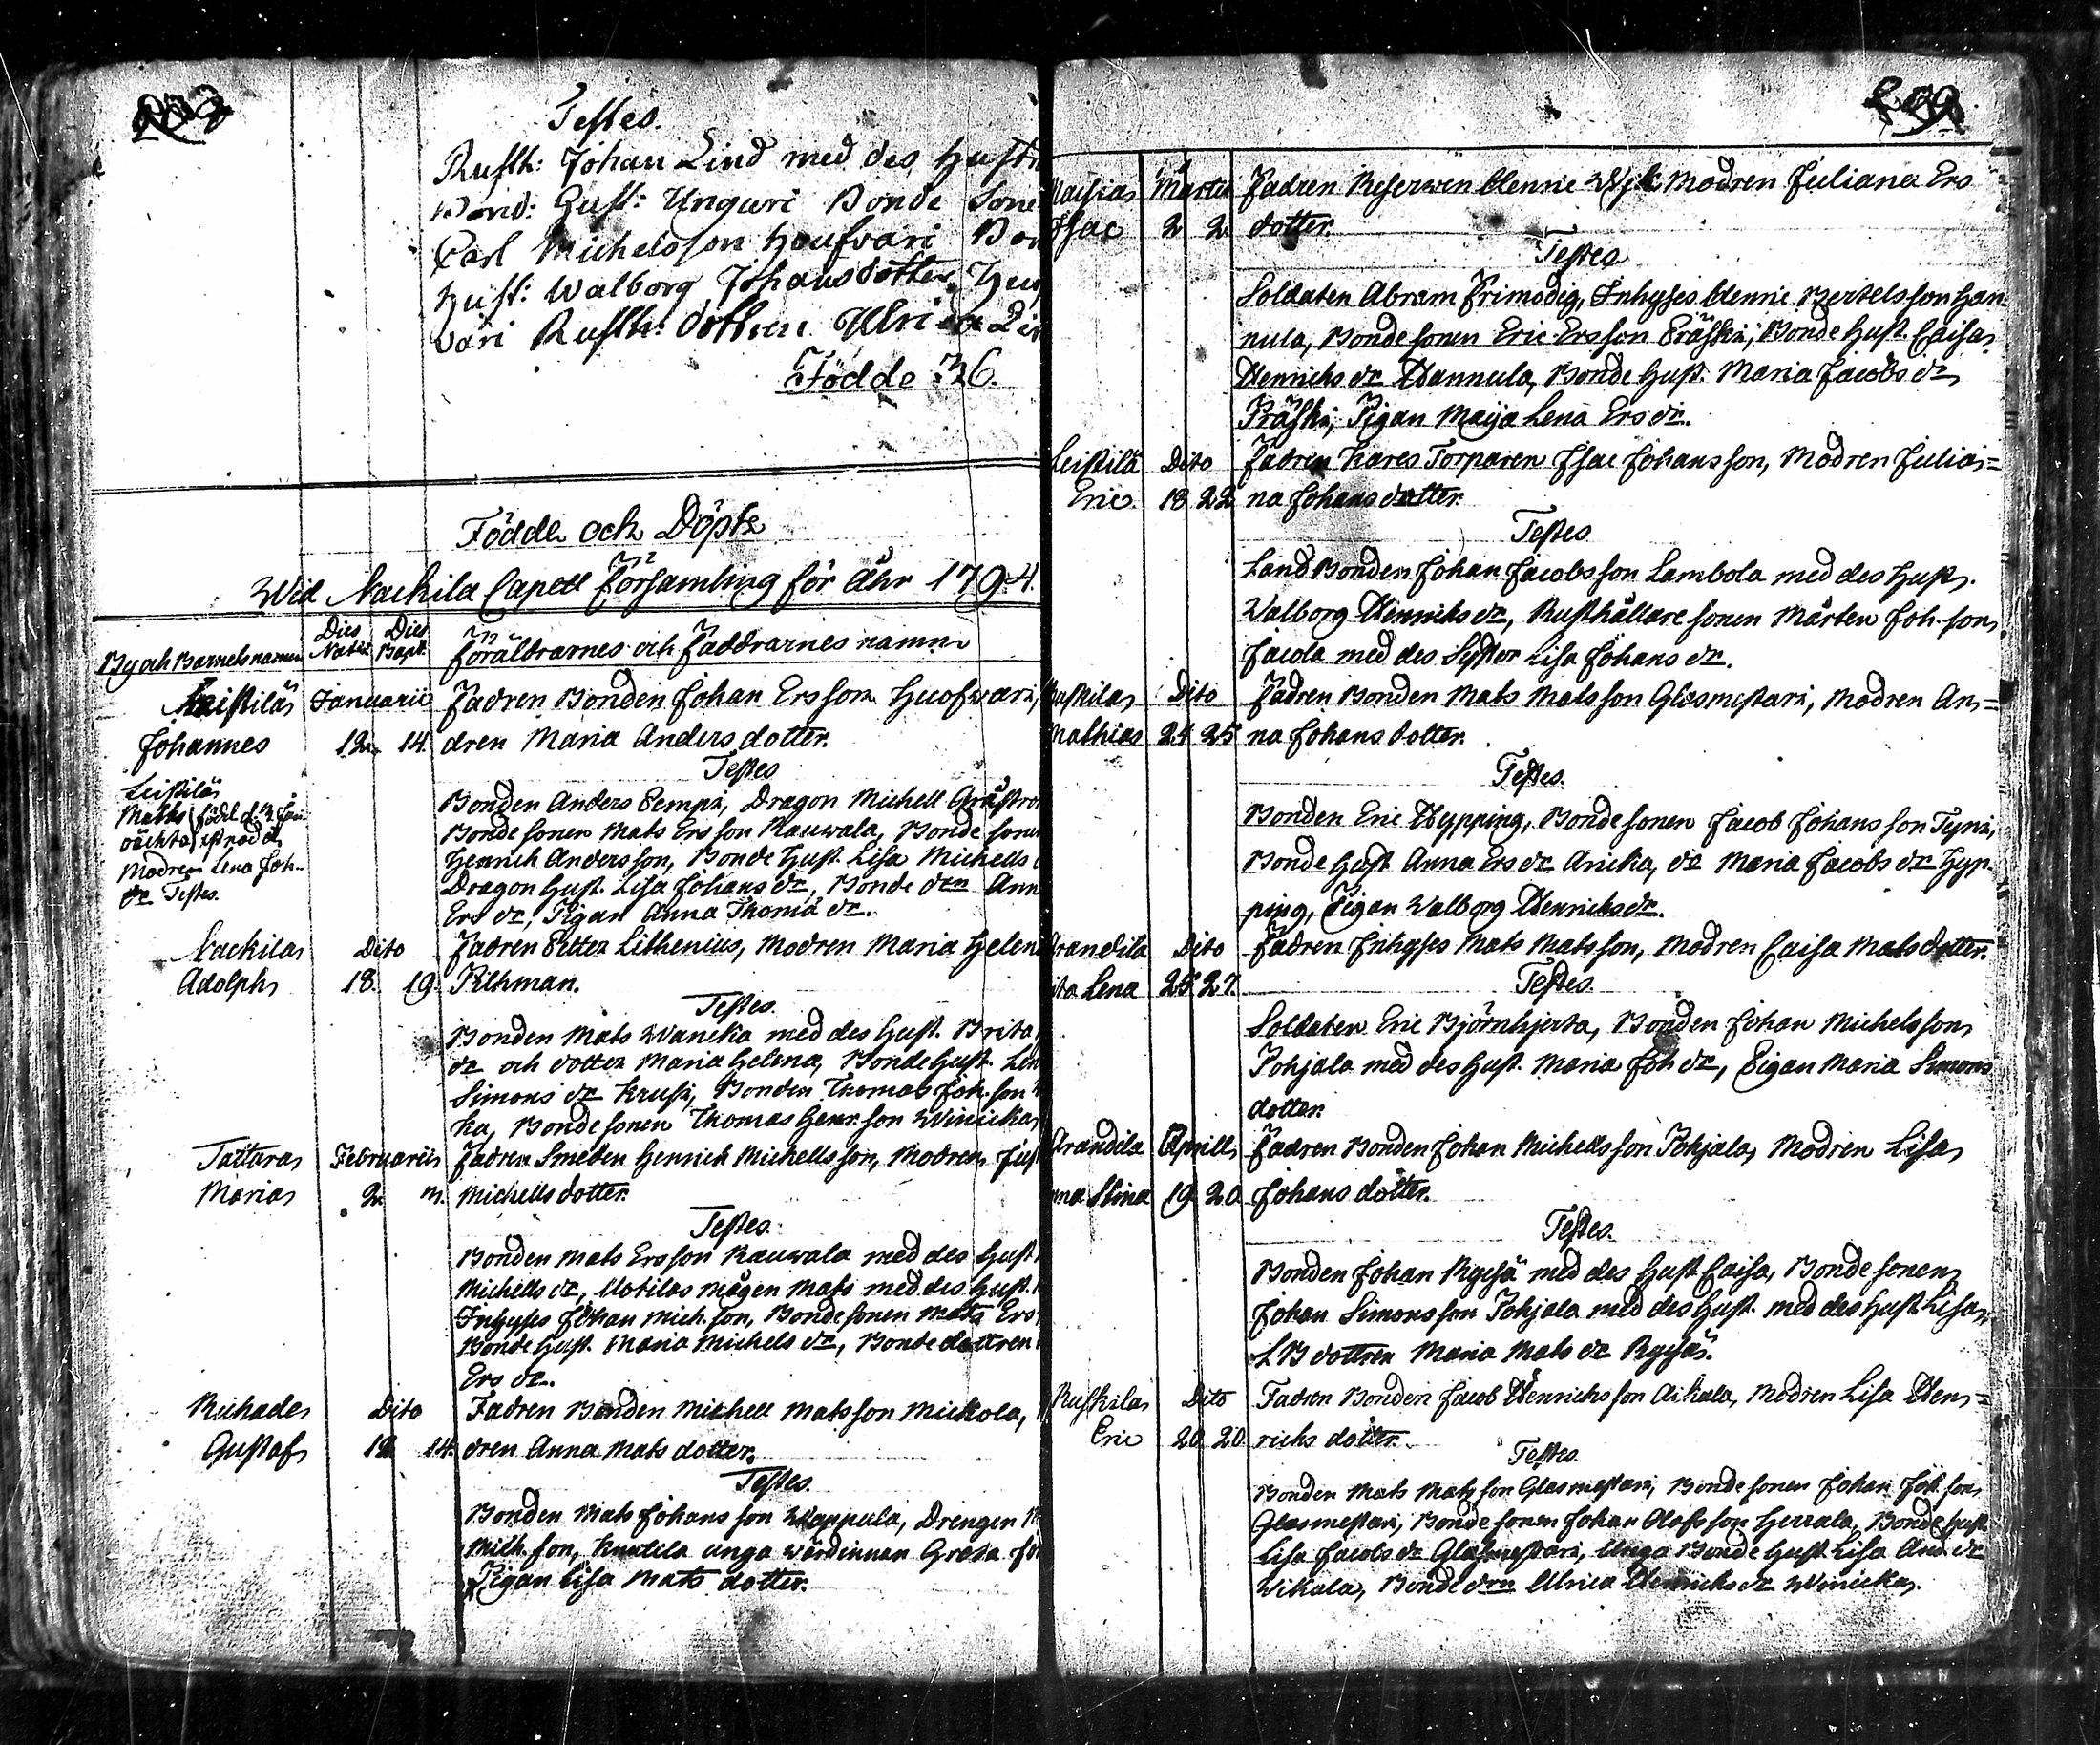 Testes.
Rusth: Johan Lind med des Hust
Wärd: Gust: Unguri Bonde Sone
Carl Michelsson Houfvari Bon
Hust: Walborg Johansdotter
vari Rusth: dottren Ulrica Lin
Födde 36.
Födde och Döpte
Wid Nackila Capell Församling för Åhr 1794.
By och Barnets namn Dies Natus Dies Bapt. Föräldrarnes och Faddrarnes namn
Leistilä Januarii Fadren Bonden Johan Ersson Huofwari,
Johannes 12. 14. dren Maria Anders dotter.
Testes
Leistilä
Maths född d. 3 Jan
oächta
Modren Lena Joh.
dr Testes.
Bonden Anders Pempi, Dragon Michell Gråströ
Bonde sonen Mats Ersson Rauwala, Bonde sone
Henrich Andersson, Bonde Hust. Lisa Michells
Dragon Hust. Lisa Johans dr, Bonde drn Ann
Ers dr, Pigan Anna Thoma dr.
Nackila Dito Fadren Petter Lithenius, Modren Maria Helen
Adolph 18. 19. Pilhman.
Testes.
Bonden Mats Wanika med des Hust. Brita
dr och dotter Maria Helena, Bonde Hust. Len
Simons dr Krusi, Bonden Thomas Joh. son
ka, Bonde sonen Thomas Henr. son Winicka
Tattara Februarii Fadren Smeden Henrich Michellsson, Modren Just
Maria 2. m. Michells dotter.
Testes.
Bonden Mats Ersson Rauwala med des Hust
Michells dr, Uotilas mågen Mats med des Hust.
Inhyses Johan Mich. son, Bonde sonen Mats Ers
Bonde Hust. Maria Michels dr, Bonde dottren
Ers dr.
Dito Fadren Bonden Michell Matsson Mickola,
Gustaf 12 14. dren Anna Mats dotter.
Testes.
Bonden Mats Johans son Wappula, Drengen
Mich. son, Knutila unga wärdinnan Greta Joh
Pigan Lisa Mats dotter.
Martii Fadren Reserwen Henric Wijk Modren Juliana Ers
Isac 2 2 dotter.
Testes
Soldaten Abram Frimodig, Inhyses Henric Bertelsson Han
nula, Bonde sonen Eric Ersson Präski, Bonde Hust. Caisa
Henrichs dr Hannula, Bonde Hust. Maria Jacobs dr
Präski, Pigan Maija Lena Ers dr.
Leistilä Dito Fadren Kares Torparen Isac Johansson, Modren Julia=
Eric. 18 22 na Johans dotter.
Testes
Land Bonden Johan Jacobsson Lambola med des Hust.
Walborg Henrichs dr, Rusthållare sonen Mårten Joh. son
Jacola med des Syster Lisa Johans dr.
Ruskila Dito Fadren Bonden Mats Matsson Glasmestari, Modren An=
Mathias 24 25 na Johans dotter.
Testes.
Bonden Eric Hypping, Bonde sonen Jacob Johansson Tyni,
Bonde Hust Anna Ers dr Aricka, do Maria Jacobs dr Hyp-
ping, Pigan Walborg Henrichs dr.
Arandila Dito Fadren Inhyses Mats Matsson, Modren Caisa Mats dotter.
ita Lena 25 27. Testes.
Soldaten Eric Björnhjerta, Bonden Johan Michelsson
Pohjala med des Hust. Maria Joh dr, Pigan Maria Simons
dotter.
Arandila Aprill Fadren Bonden Johan Michellsson Pohjala, Modren Lisa
nna Stina 19 20 Johans dotter.
Testes.
Bonden Johan Rygsä med des Hust Caisa, Bonde sonen
Johan Simonsson Pohjala med des Hust. med des Hust Lisa
L B dottren Maria Mats dr Rygsä.
Ruskila Dito Fadren Bonden Jacob Henrichsson Aikala, Modren Lisa Hen=
Eric 20 20 richs dotter.
Testes.
Bonden Mats Matsson Glasmestari, Bonde sonen Johan Joh. son
Glasmestari, Bonde sonen Johan Olofsson Herrala, Bonde Hust
Lisa Jacobs dr Glasmestari, Unga Bonde Hust Lisa And. dr
Wikala, Bonde drn Ulrica Henrichs dr Winicka.